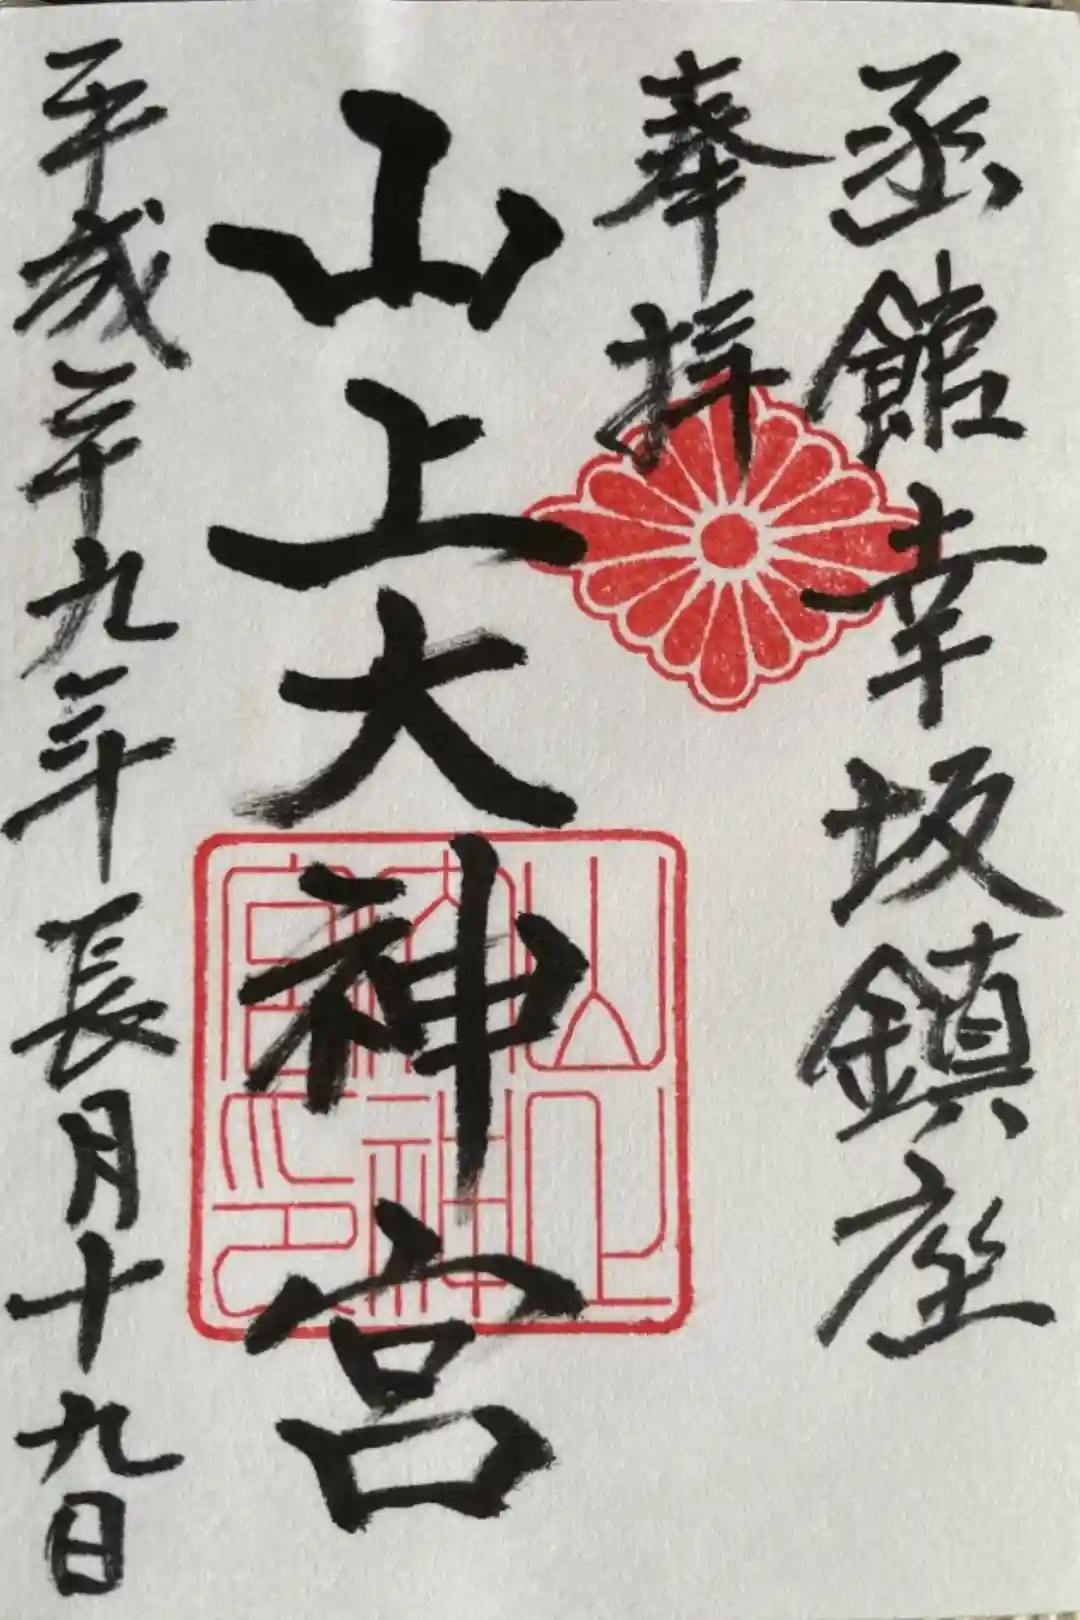 函館幸坂鎮座
奉拝
山上大神宮
平成二十九年長月十九日